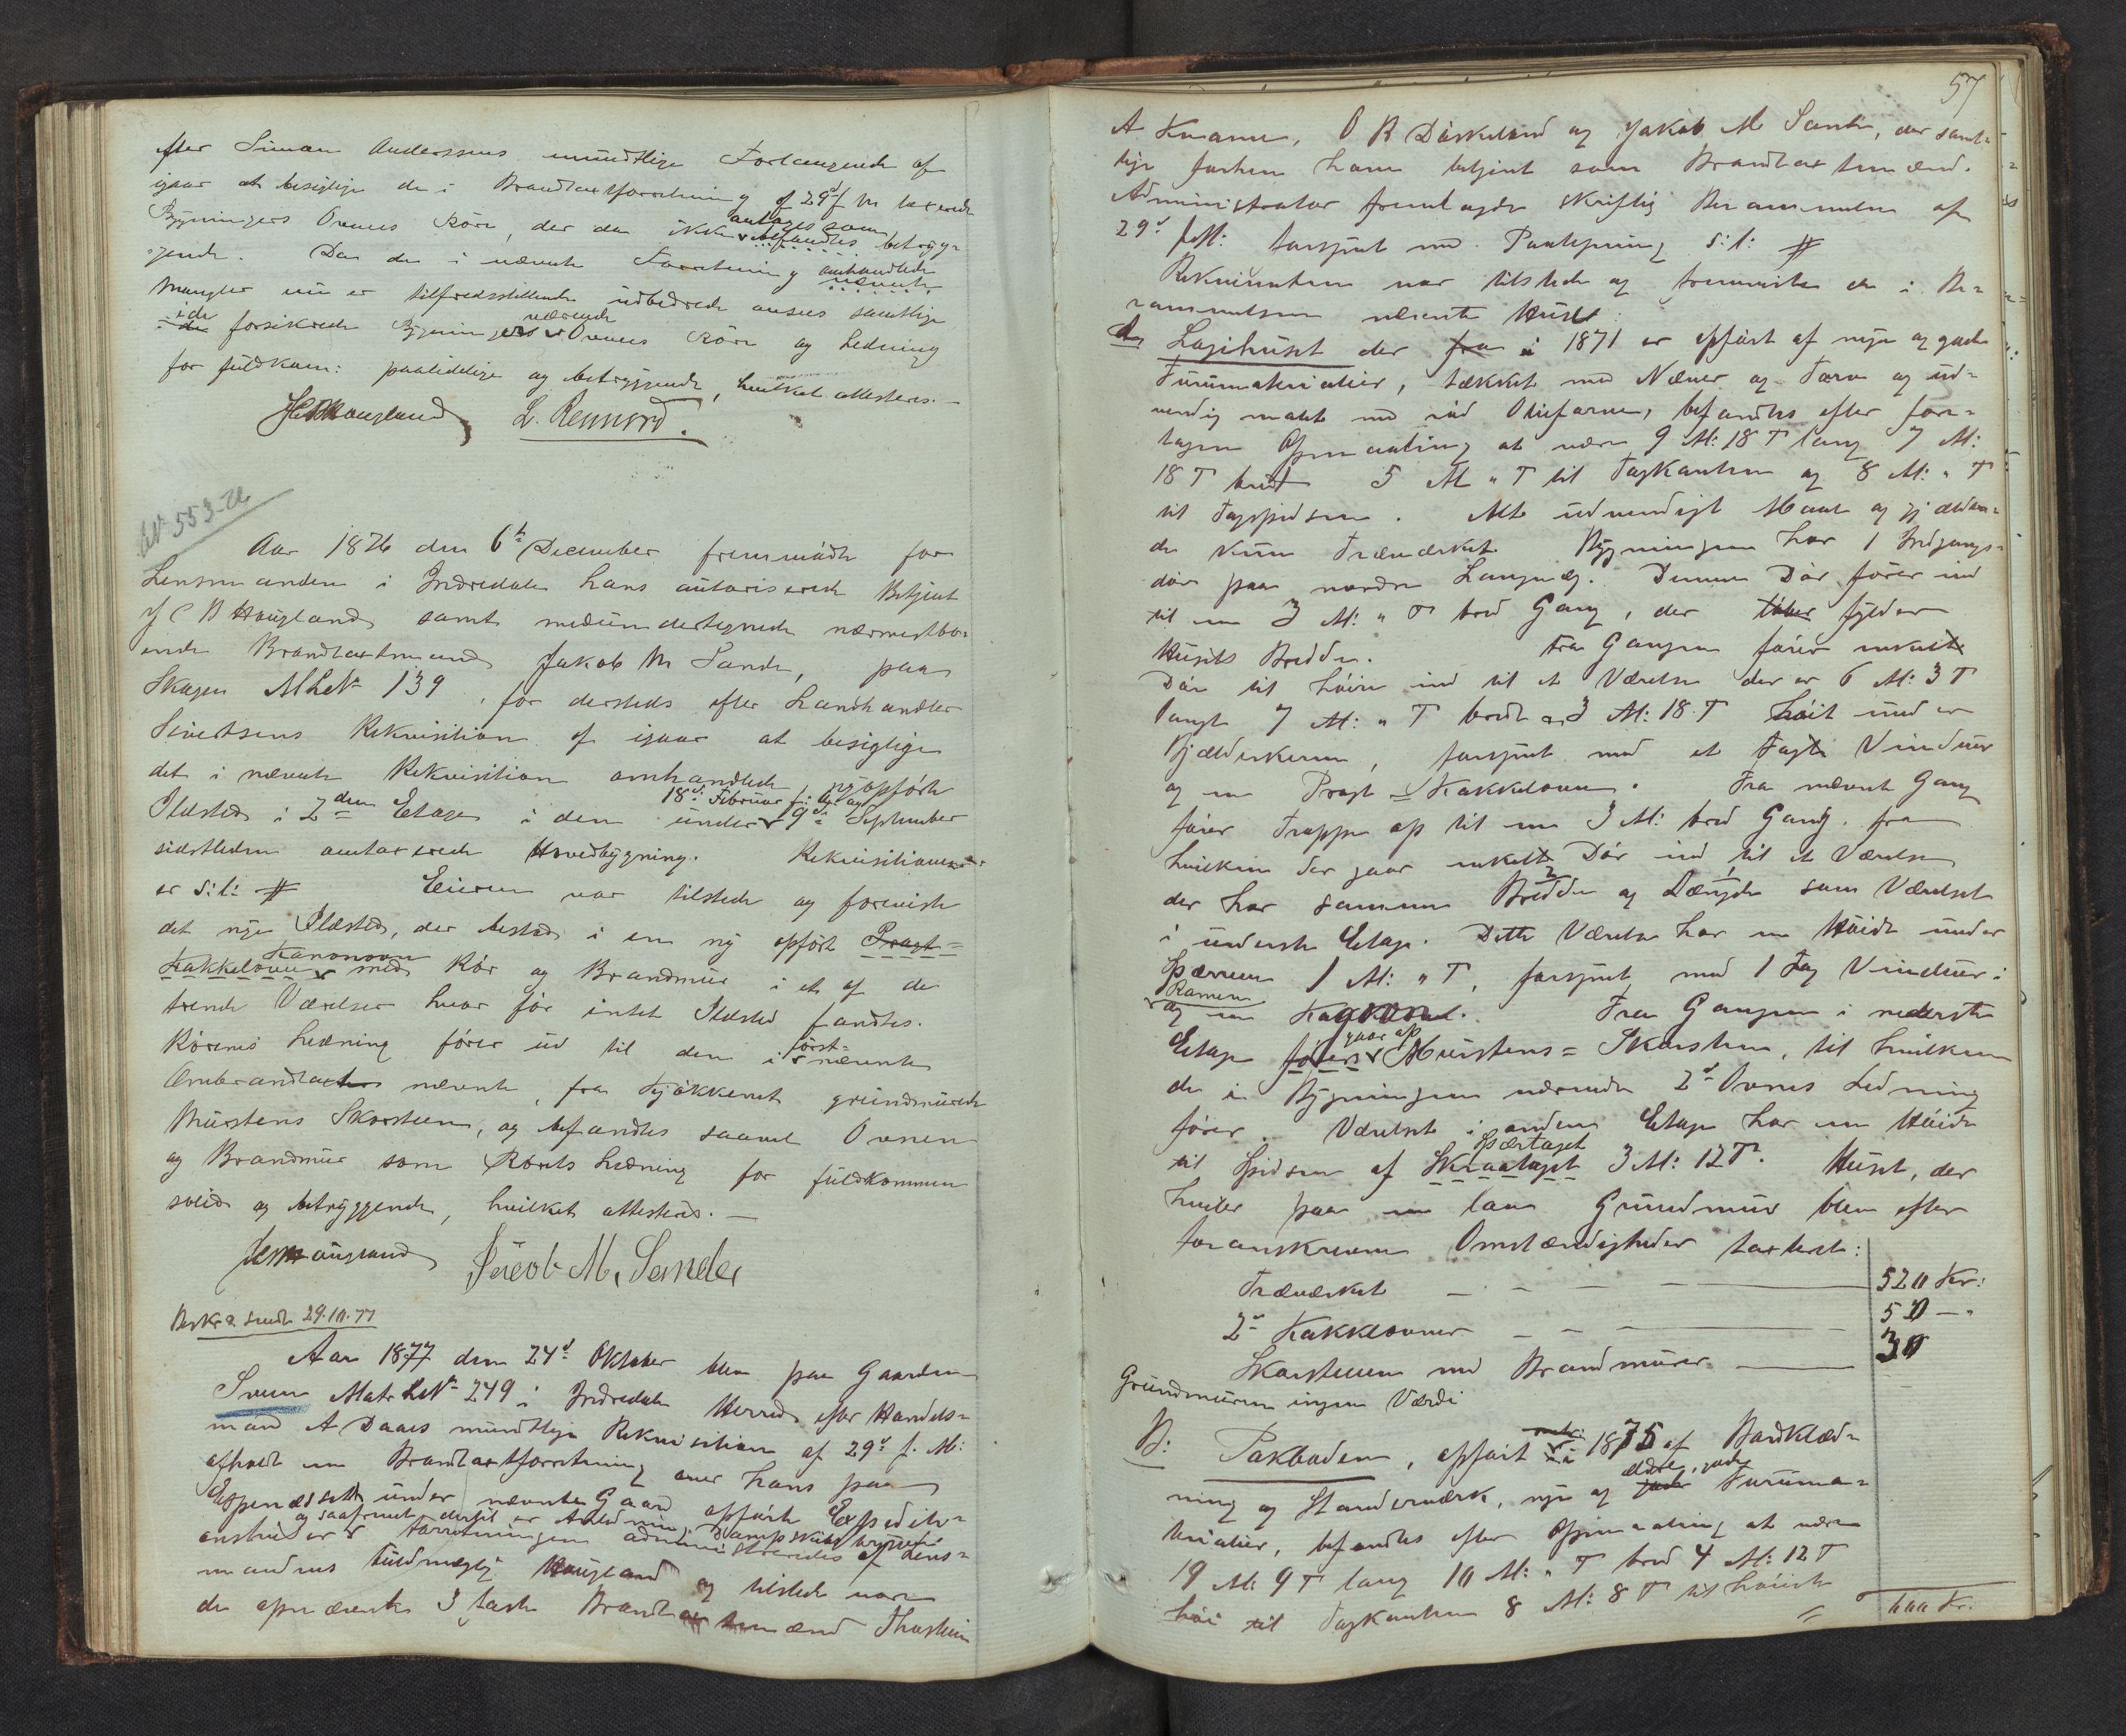 efter Simon Anderssens mundtlige Forlangende af
igaar at besigtige de i Brandtaxtforretning af 29de f M taxerede
Bygningers Ovnes Rør, der da ikke antages som befandtes betryg-
gende. Da de i nævnte Forretning omhandlede nævnte
Mangler nu er tilfredsstillende udbedrede ansees samtlige
i de forsikrede Bygninger værende Ovnes Rør og Ledning
for fuldkom: paalidelige og betryggende, hvilket attesteres.
Haugland L. Rennord.
No 553-76
Aar 1876 den 6te December fremmødte for
Lensmanden i Indredalen hans autoriserede Betjent
J C B Haugland samt medundertegnede nærmestbo-
ende Brandtaxtmand Jakob M Sande, paa
Skagen MLNo 139, for dersteds efter Landhandler
Sivertsens Rekvisition af igaar at besigtige
det i nævnte Rekvisition omhandlede nyopførte
Ildsted i 2den Etage i den under 18de Februar f: A: og 19de September
sidstleden omtaxerede Hovedbygning. Rekvisitionen
er s: l: #. Eieren var tilstede og foreviste
det nye Ildsted, der bestod i en ny opført Pragt-
Kakkelovn Kanonovn med Rør og Brandmur i et af de
tvende Værelser hvor før intet Ildsted fandtes.
Rørenes Ledning fører ud til den i først- nævnte
Ombrandtaxt nævnte, fra Kjøkkenet grundmurede
Murstens Skorsteen, og befandtes saavel Ovnen
og Brandmur som Rørets Ledning for fuldkommen
solid og betryggende, hvilket attesteres.
Haugland Jacob M. Sande
Beskr & sendt 29.10.77
Aar 1877 den 24de Oktober blev paa Gaarden
Svum Matr LNo 249 i Indredalen Herred efter Handels-
mand A Daaes mundtlige Rekvisition af 29de f. M:
afholdt en Brandtaxtforretning over hans paa
Espenæssett under nævnte Gaard opførte Expeditions-
og saafremt dertil er Anledning, Dampskibsbrygge
Forretningen administreredes af Lens-
mandens Fuldmægtig Haugland og tilstede vare
de opnævnte 3 faste Brandtaxtmænd Thorstein
57
A Kvamme, O R Dørkeland og Jakob M Sande, der samt-
lige forhen have betjent som Brandtaxtmænd.
Administrator fremlagde skriftlig Berammelse af
29de f M: forsynt med Paategning s: l: #
Rekvirenten var tilstede og fremviste de i Be-
rammelsen nævnte Huse:
A, Logihuset der fra i 1871 er opført af nye og gode
Furumaterialier, tækket med Næver og Torv og ud-
vendig malet med rød Oliefarve, befandtes efter fore-
tagen Opmaaling at være 9 Al: 18 T lang 7 Al:
18 T bredt 5 Al " T til Tagkanten og 8 Al: " T
til Tagspidsen. Alt udvendigt Maal og gjælden-
de kun Træværket. Bygningen har 1 Indgangs-
dør paa nordre Langvæg. Denne Dør fører ind
til en 3 Al: " T bred Gang, der fylder
Husets Bredde. Fra Gangen fører enkelt
Dør til høire ind til et Værelse der er 6 Al: 3 T
langt 7 Al: " T bredt og 3 Al: 18 T høit under
Bjælderkerne, forsynt med et Fag Vinduer
og en Pragt - Kakkelovn. Fra nævnte Gang
fører Trappe op til en 3 Al: bred Gang. fra
hvilken der gaar enkelt Dør ind til et Værelse
der har samme Bredde og Længde som Værelset
i underste Etage. Dette Værelse har en Høide under
Spærrene 1 Al: " T, forsynt med 1 Fag Vinduer i
Ramen og en Kakkelovn. Fra Gangen i nederste
Etage fører gaar op Murstens-Skorsten, til hvilken
de i Bygningen værende 2de Ovnes Ledning
fører. Værelset i anden Etage har en Høide
til Spidsen af Skraataget Spærtaget 3 Al: 12 T. Huset, der
hviler paa en lav Grundmur blev efter
foranskrevne Omstændigheder taxeret:
Træværket 520 Kr:
2de Kakkelovner 50 -
Skorstenen med Brandmurer 30
Grundmuren ingen Værdi
600 Kr.
B: Pakboden, opført i 1875 af Bordklæd-
ning og Standerværk, nye og ældre, gode Furuma-
terialier, befandtes efter Opmaaling at være
19 Al: 9 T lang 10 Al: " T bred 4 Al: 12 T
høi til Tagkanten 8 Al: 8 T til høieste